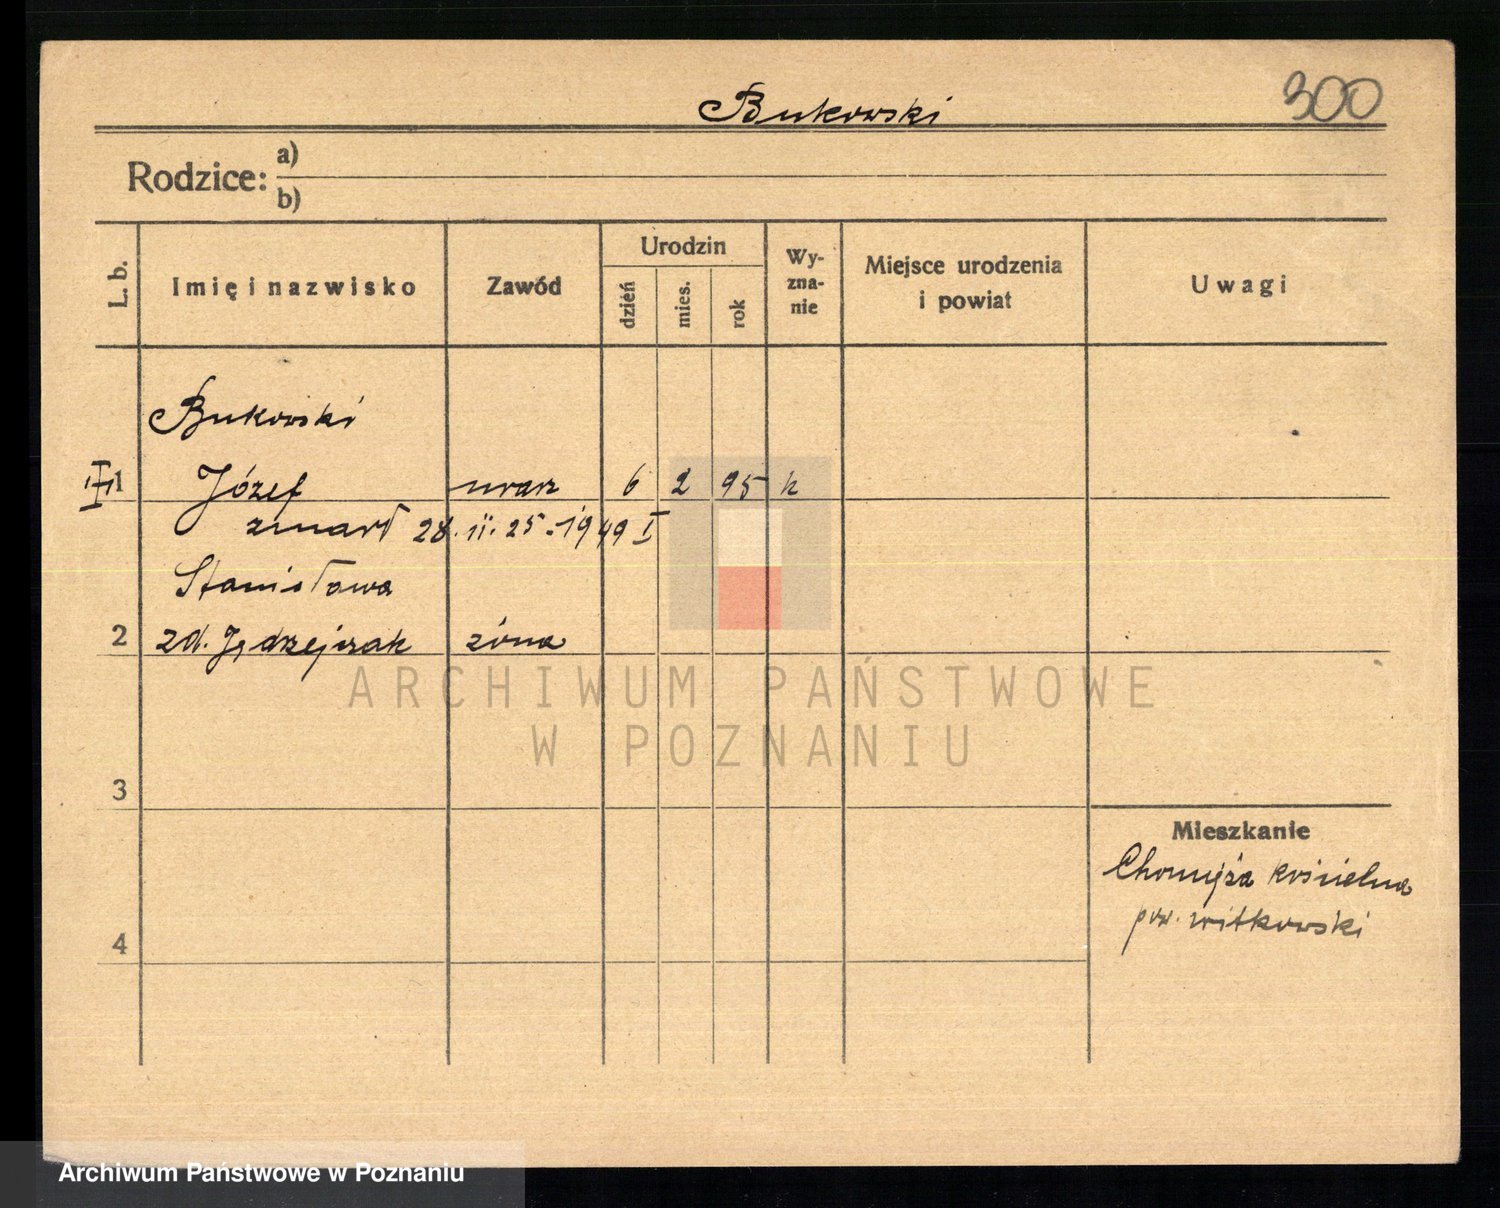 Bukowski
300
Rodzice: a)
b)
L. b.
Imię i nazwisko
Zawód
Urodzin
dzień
mies.
rok
Wy-
zna-
nie
Miejsce urodzenia
i powiat
Uwagi
Bukowski
1 Józef 6 2 95 k
zmarł 28. 11. 25. 1949 I
Stanisława
2 zd. Jędrzejczak żona
3
4
Mieszkanie
Chomiąża kościelna
pow. witkowski
ARCHIWUM PAŃSTWOWE
W POZNANIU
Archiwum Państwowe w Poznaniu